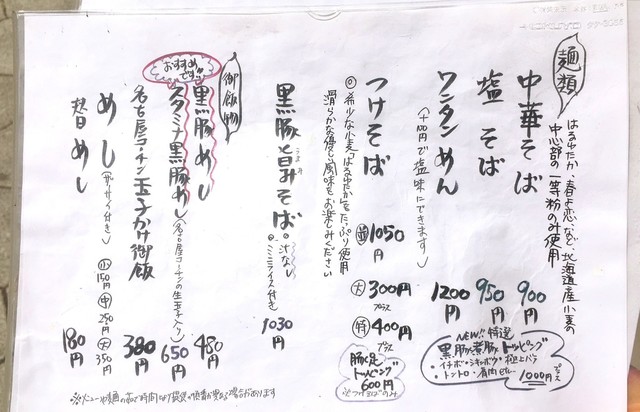 麺類
はるゆたか、春よ恋など、北海道産小麦の
中心部の一等粉のみ使用
中華そば 900円
塩そば 950円
ワンタンめん 1200円
(+100円で塩味にできます)
つけそば
並 1050円
大 300円プラス
特 400円プラス
◎希少な小麦「はるゆたか」をたっぷり使用
滑らかな優しい風味をお楽しみください
豚足トッピング
600円
※つけそばのみ
NEW!! 特選
黒豚煮豚トッピング
・イチボ・シキンボ・極上バラ
・トントロ・肩肉 etc…
1000円プラス
黒豚旨みそば。汁なし
ミニライス付き
1030円
御飯物
おすすめです!!
黒豚めし 480円
スタミナ黒豚めし(名古屋コーチンの生玉子入り) 650円
名古屋コーチン玉子かけ御飯 380円
めし(ザーサイ付き)
小 150円
中 250円
大 350円
替めし 180円